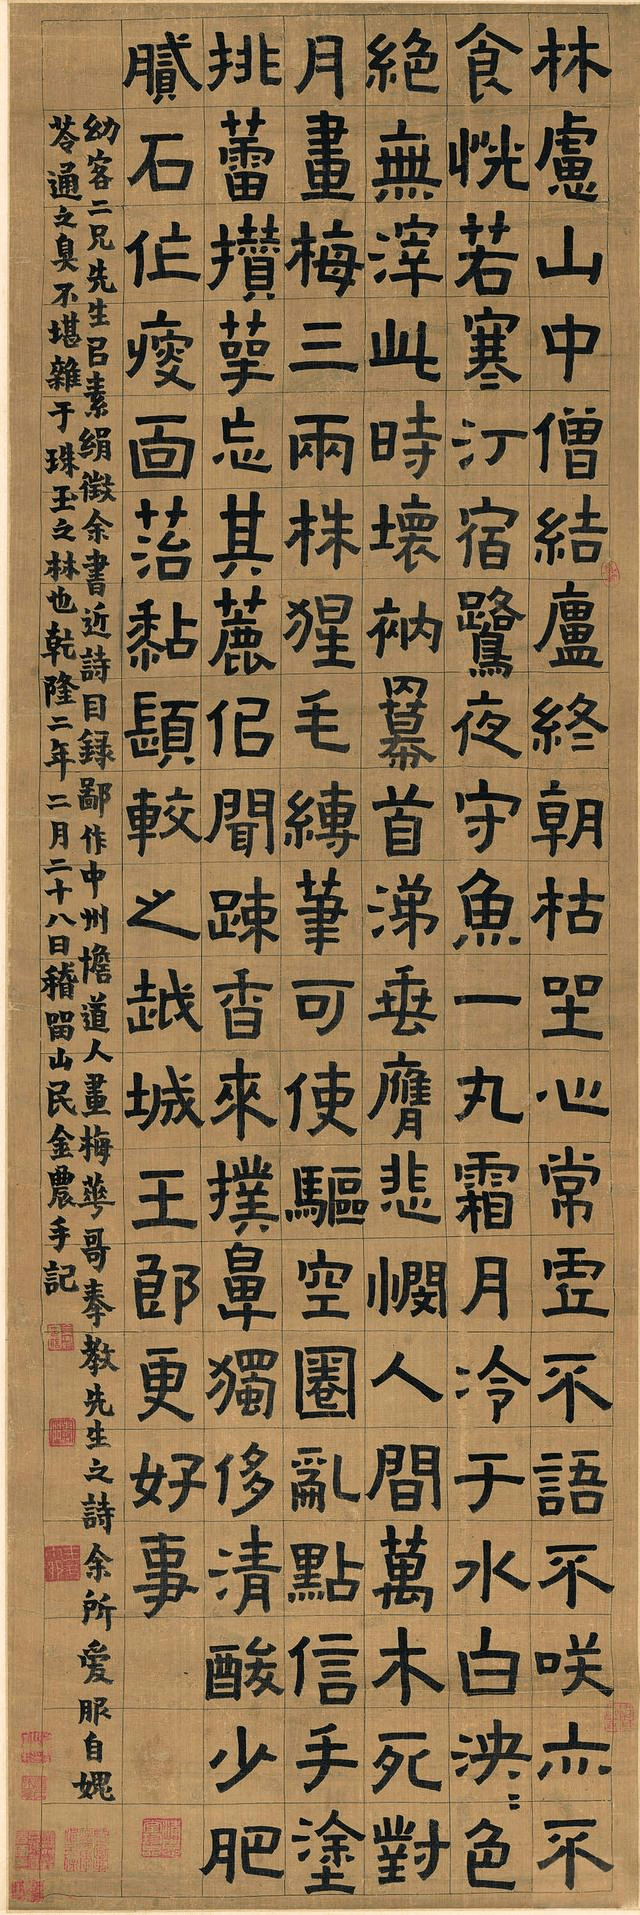 林慮山中僧結廬終朝枯坐心常虛不語不咲亦不
食恍若寒汀宿鷺夜守魚一丸霜月冷于水白泱〻色
絕無滓此時壞衲羃首涕垂膺悲憫人間萬木死對
月畫梅三兩株猩毛縛筆可使驅空圈亂點信手塗
挑蕾攢萼忘其麤侶聞踈香來撲鼻獨侈清酸少肥
膩石作瘦面苔黏較之越城王郎更好事
幼客二兄先生㠯素絹徵余書近詩目録鄙作中州憺道人畫梅華哥奉教先生之詩余所愛服自媿
苓通之臭不堪雜于珠玉之林也乾隆二年二月二十八日稽留山民金農手記